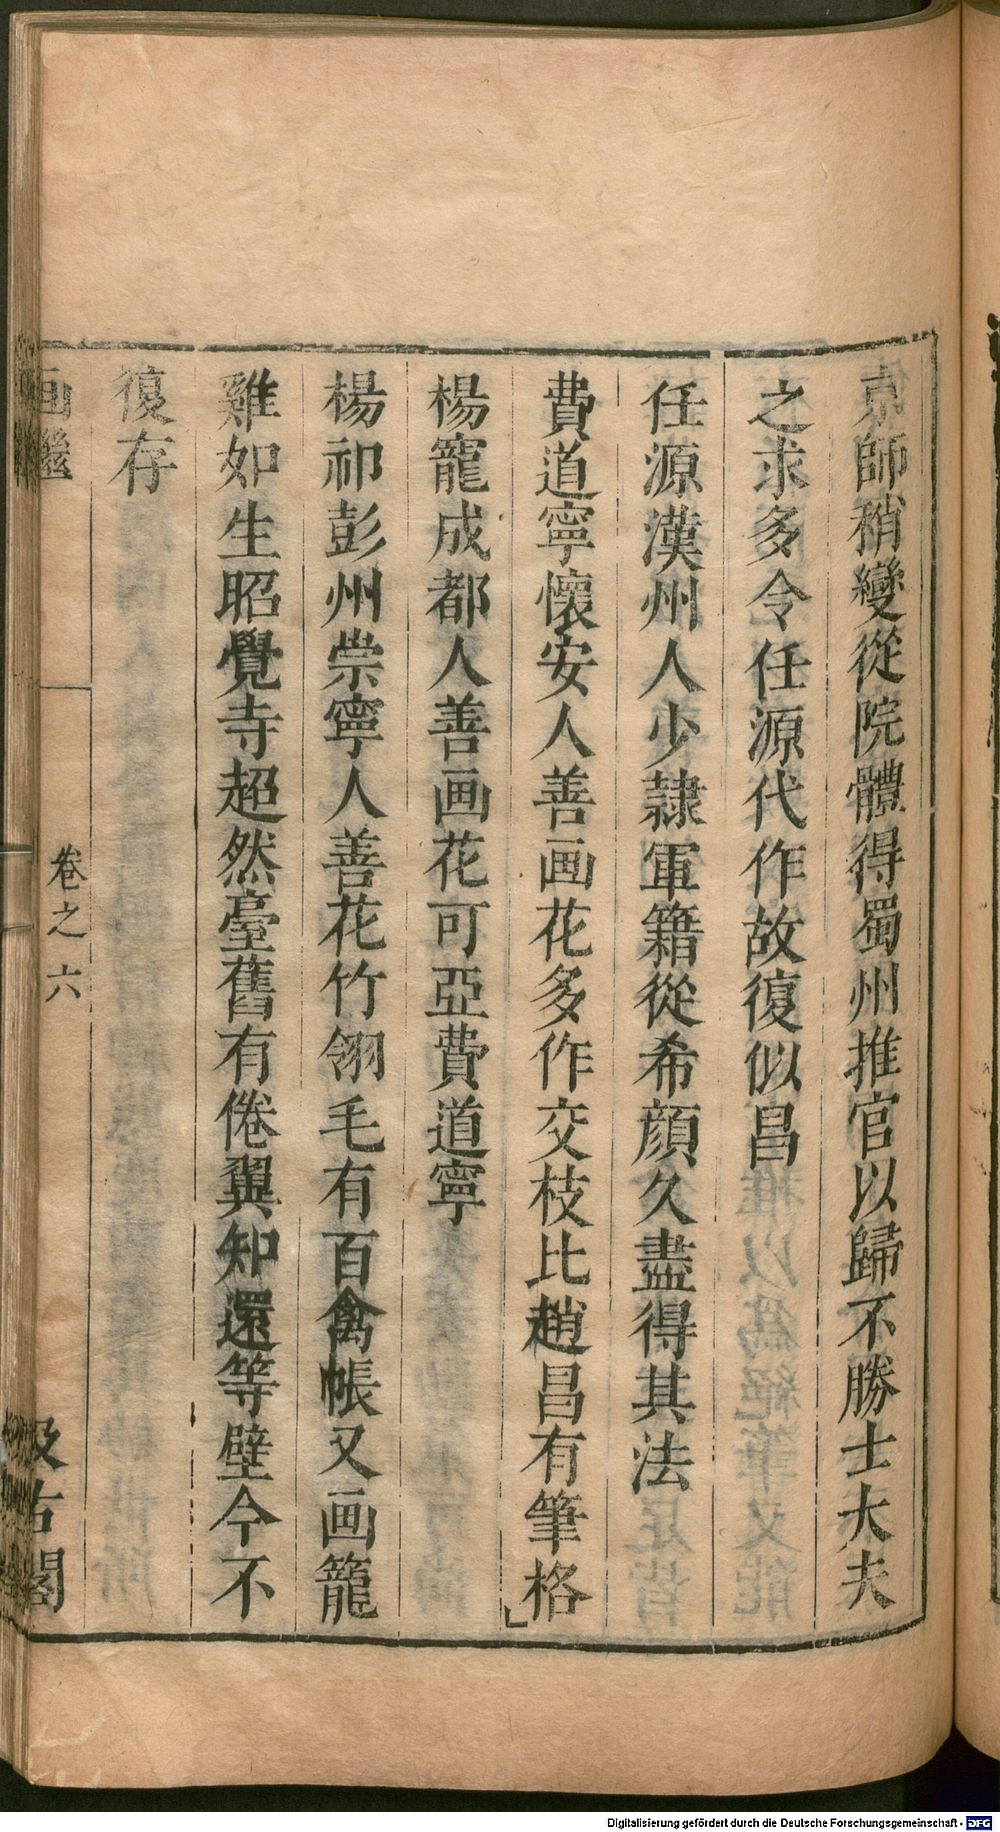 京師稍變從院體得蜀州推官以歸不勝士大夫
之求多令任源代作故復似昌
任源漢州人少隷軍籍從希顏久盡得其法
費道寧懷安人善画花多作交枝比趙昌有筆格
楊寵成都人善画花可亞費道寧
楊祁彭州崇寧人善花竹翎毛有百禽帳又画籠
雞如生昭覺寺超然臺舊有倦翼知還等壁今不
復存
画繼
卷之六
汲古閣
Digitalisierung gefördert durch die Deutsche Forschungsgemeinschaft - DFG